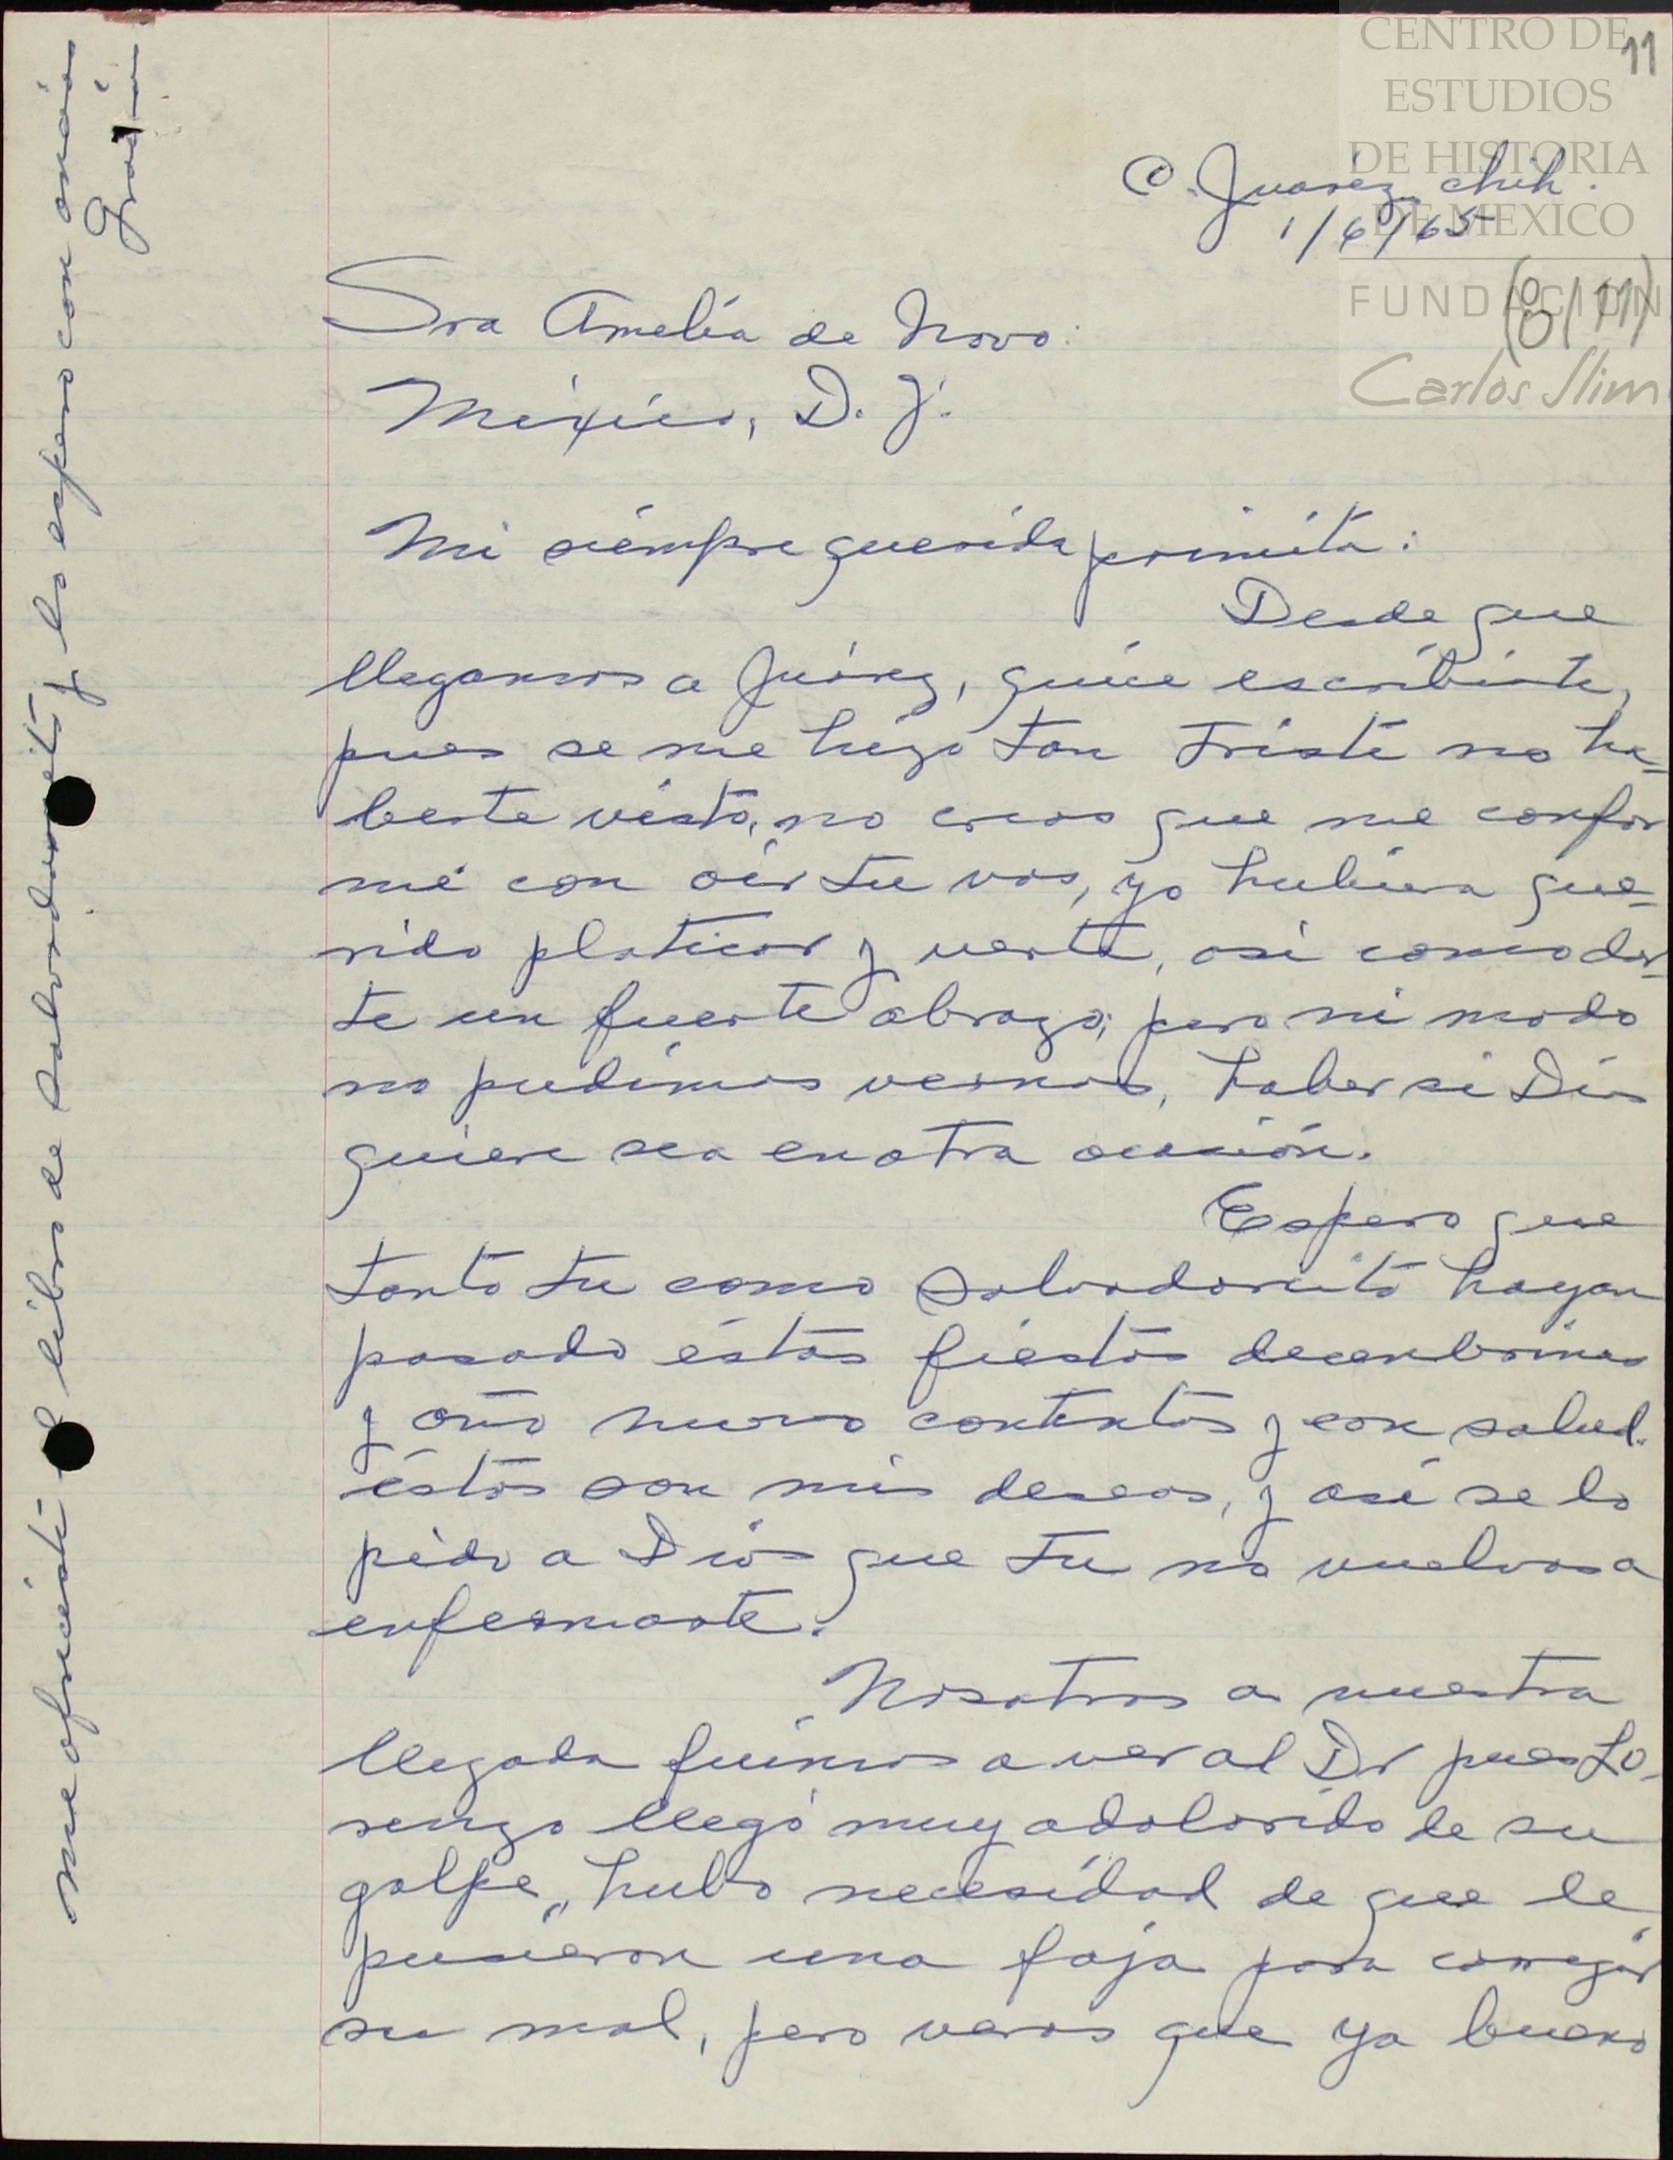 CENTRO DE
ESTUDIOS
DE HISTORIA
DE MEXICO
FUNDACION
Carlos Slim
11
(8/11)
C. Juárez chih.
1/6/65
Sra Amelia de Novo:
México, D. F.
Mi siempre querida primita:
Desde que
llegamos a Juárez, quice escribirte,
pues se me hizo tan triste no ha-
berte visto, no creas que me confor
mé con oir tu vos, yo hubiera que-
rido platicar y verte, asi como dar-
te un fuerte abrazo; pero ni modo
no pudimos vernos, haber si Dios
quiere sea en otra ocasión.
Espero que
tanto tu como Salvadorcito hayan
pasado éstas fiestas decembrinas
y año nuevo contentos y con salud.
éstos son mis deseos, y asi se lo
pido a Dios que tu no vuelvas a
enfermarte.
Nosotros a nuestra
llegada fuimos a ver al Dr pues Lo-
renzo llegó muy adolorido de su
golpe, hubo necesidad de que le
pusieron una faja para corregir
su mal, pero veras que ya bueno
me ofreciste el libro de Salvadorcito y lo espero con ansias
Gracias